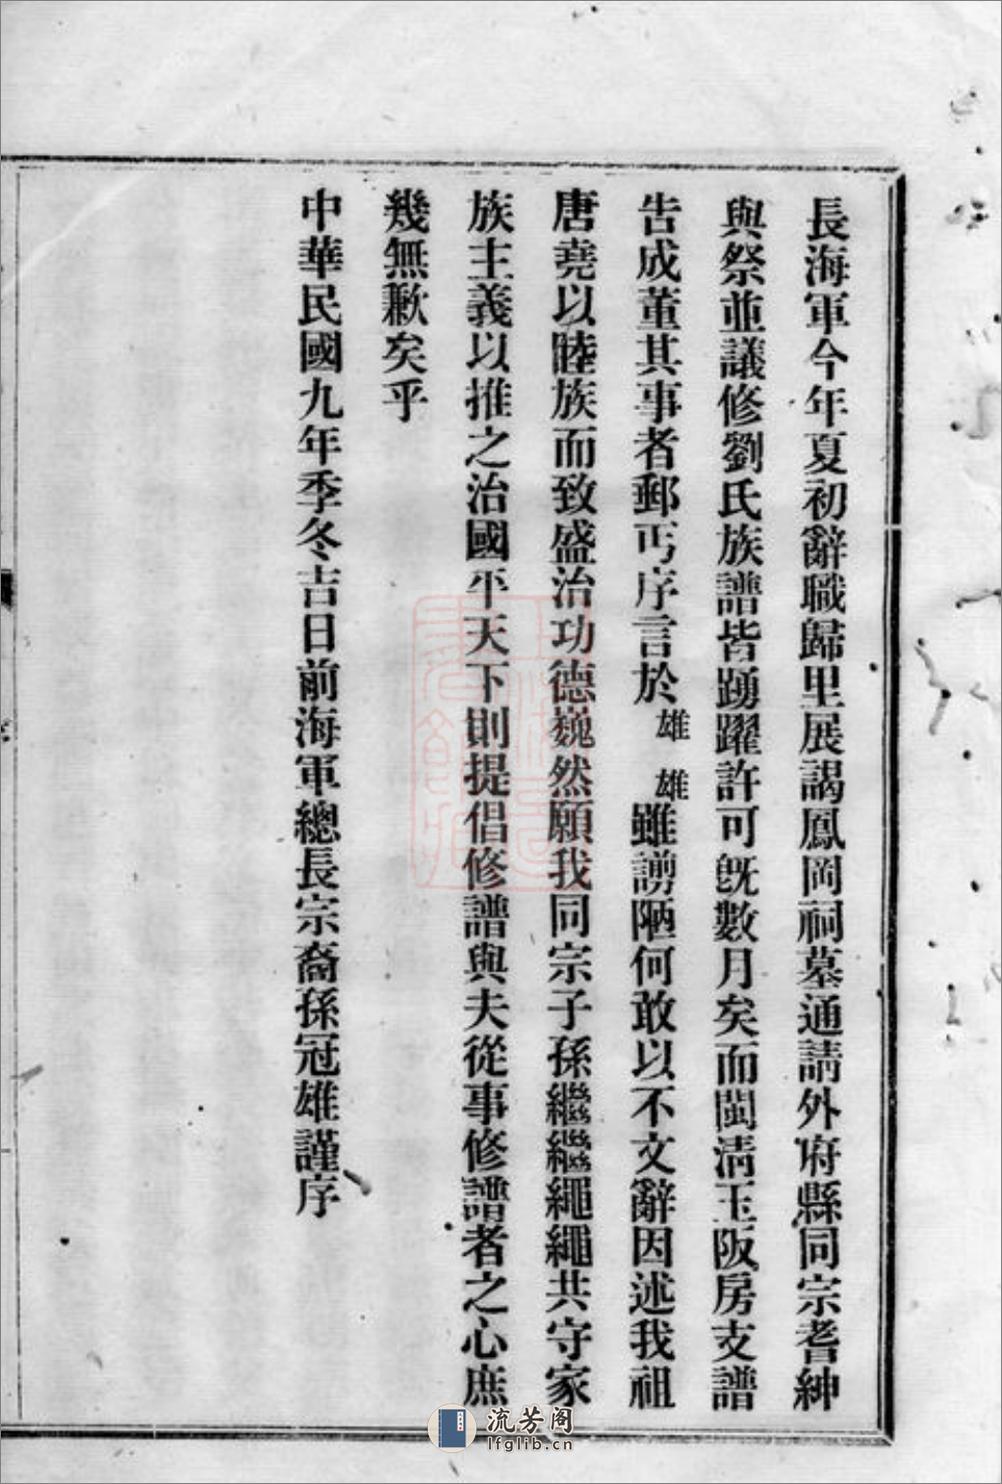 長海軍今年夏初辭職歸里展謁鳳岡祠墓通請外府縣同宗耆紳
與祭並議修劉氏族譜皆踴躍許可旣數月矣而閩淸玉阪房支譜
告成董其事者郵丐序言於雄雄雖謭陋何敢以不文辭因述我祖
唐堯以睦族而致盛治功德巍然願我同宗子孫繼繼繩繩共守家
族主義以推之治國平天下則提倡修譜與夫從事修譜者之心庶
幾無歉矣乎
中華民國九年季冬吉日前海軍總長宗裔孫冠雄謹序
流芳阁
lfglib.cn